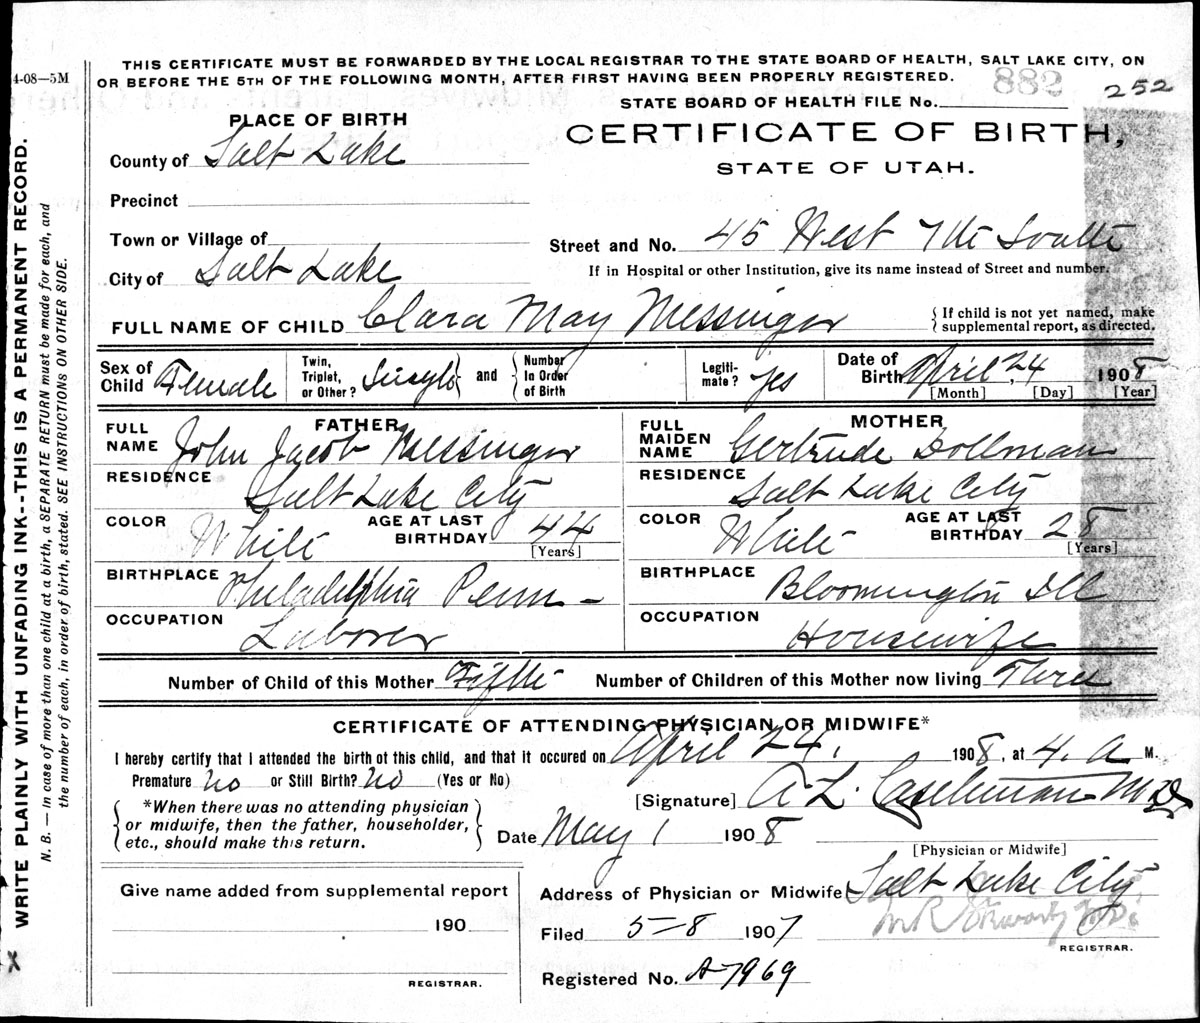 4-08—5M
THIS CERTIFICATE MUST BE FORWARDED BY THE LOCAL REGISTRAR TO THE STATE BOARD OF HEALTH, SALT LAKE CITY, ON
OR BEFORE THE 5TH OF THE FOLLOWING MONTH, AFTER FIRST HAVING BEEN PROPERLY REGISTERED.
882
252
STATE BOARD OF HEALTH FILE No.
PLACE OF BIRTH
CERTIFICATE OF BIRTH,
STATE OF UTAH.
County of Salt Lake
Precinct
Town or Village of
Street and No. 45 West 7th South
City of Salt Lake
If in Hospital or other Institution, give its name instead of Street and number.
FULL NAME OF CHILD Clara May Messinger
{ If child is not yet named, make
supplemental report, as directed.
Sex of Child Female
Twin, Triplet, or Other? Single
and
Number In Order of Birth
Legiti-mate? yes
Date of Birth April 24, 1908
[Month] [Day] [Year]
FATHER
FULL NAME John Jacob Messinger
RESIDENCE Salt Lake City
COLOR White AGE AT LAST BIRTHDAY 44
[Years]
BIRTHPLACE Philadelphia Penn –
OCCUPATION Laborer
MOTHER
FULL MAIDEN NAME Gertrude Dollman
RESIDENCE Salt Lake City
COLOR White AGE AT LAST BIRTHDAY 28
[Years]
BIRTHPLACE Bloomington Ill
OCCUPATION Housewife
Number of Child of this Mother Fifth Number of Children of this Mother now living Three
CERTIFICATE OF ATTENDING PHYSICIAN OR MIDWIFE*
I hereby certify that I attended the birth of this child, and that it occured on April 24, 1908, at 4. A M.
Premature No or Still Birth? No (Yes or No)
{ *When there was no attending physician
or midwife, then the father, householder,
etc., should make this return. }
[Signature] A L. Castleman M.D.
Date May 1 1908
[Physician or Midwife]
Give name added from supplemental report
190
REGISTRAR.
Address of Physician or Midwife Salt Lake City
Filed 5-8 1907
M R Stewart M.D.
REGISTRAR.
Registered No. A-7969
WRITE PLAINLY WITH UNFADING INK--THIS IS A PERMANENT RECORD.
N. B. — In case of more than one child at a birth, a SEPARATE RETURN must be made for each, and
the number of each, in order of birth, stated. SEE INSTRUCTIONS ON OTHER SIDE.
X